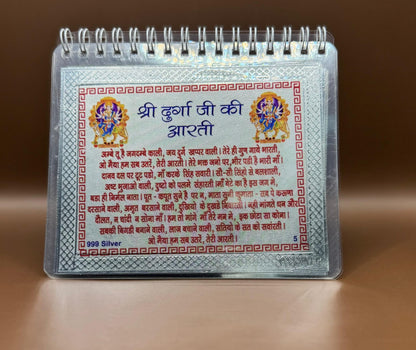 श्री दुर्गा जी की
आरती
अम्बे तू है जगदम्बे काली, जय दुर्गे खप्पर वाली। तेरे ही गुण गावे भारती,
ओ मैया हम सब उतरें, तेरी आरती। तेरे भक्त जनो पर, भीर पडी है भारी माँ।
दानव दल पर टूट पडो, माँ करके सिंह सवारी। सौ-सौ सिंहो से बलशाली,
अष्ट भुजाओ वाली, दुष्टो को पलमे संहारती।माँ बेटे का है इस जग मे,
बडा ही निर्मल नाता। पूत - कपूत सुने है पर न, माता सुनी कुमाता - सब पे करूणा
दरसाने वाली, अमृत बरसाने वाली, दुखियो के दुखडे निवारती। नही मांगते धन और
दौलत, न चांदी न सोना माँ। हम तो मांगे माँ तेरे मन मे, इक छोटा सा कोना।
सबकी बिगडी बनाने वाली, लाज बचाने वाली, सतियो के सत को सवांरती।
ओ मैया हम सब उतरें, तेरी आरती।
999 Silver
5